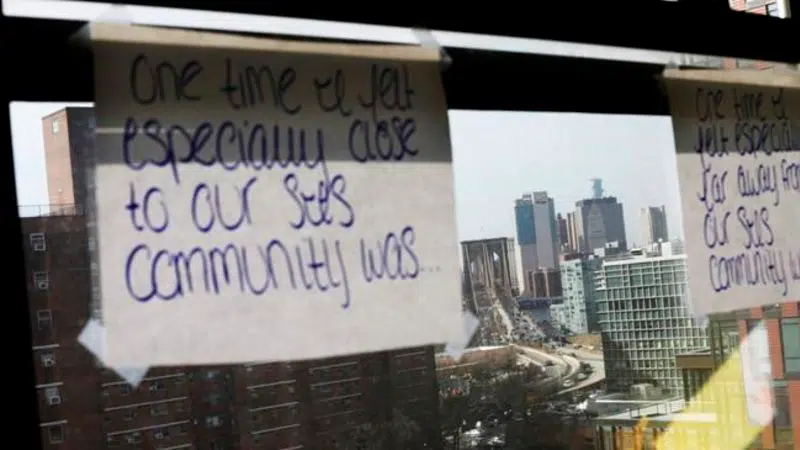 One time felt
especially close
to our StS
community was...
One time
felt
far away
our StS
community